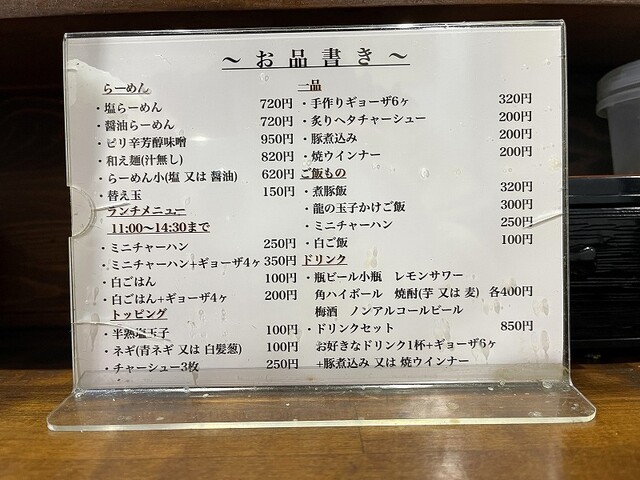 ～お品書き～
らーめん
・塩らーめん 720円
・醤油らーめん 720円
・ピリ辛芳醇味噌 950円
・和え麺(汁無し) 820円
・らーめん小(塩 又は 醤油) 620円
・替え玉 150円
ランチメニュー
11:00～14:30まで
・ミニチャーハン 250円
・ミニチャーハン+ギョーザ4ヶ 350円
・白ごはん 100円
・白ごはん+ギョーザ4ヶ 200円
トッピング
・半熟塩玉子 100円
・ネギ(青ネギ 又は 白髪葱) 100円
・チャーシュー3枚 250円
一品
・手作りギョーザ6ヶ 320円
・炙りヘタチャーシュー 200円
・豚煮込み 200円
・焼ウインナー 200円
ご飯もの
・煮豚飯 320円
・龍の玉子かけご飯 300円
・ミニチャーハン 250円
・白ご飯 100円
ドリンク
・瓶ビール小瓶 レモンサワー
角ハイボール 焼酎(芋 又は 麦) 各400円
梅酒 ノンアルコールビール
・ドリンクセット 850円
お好きなドリンク1杯+ギョーザ6ヶ
+豚煮込み 又は 焼ウインナー